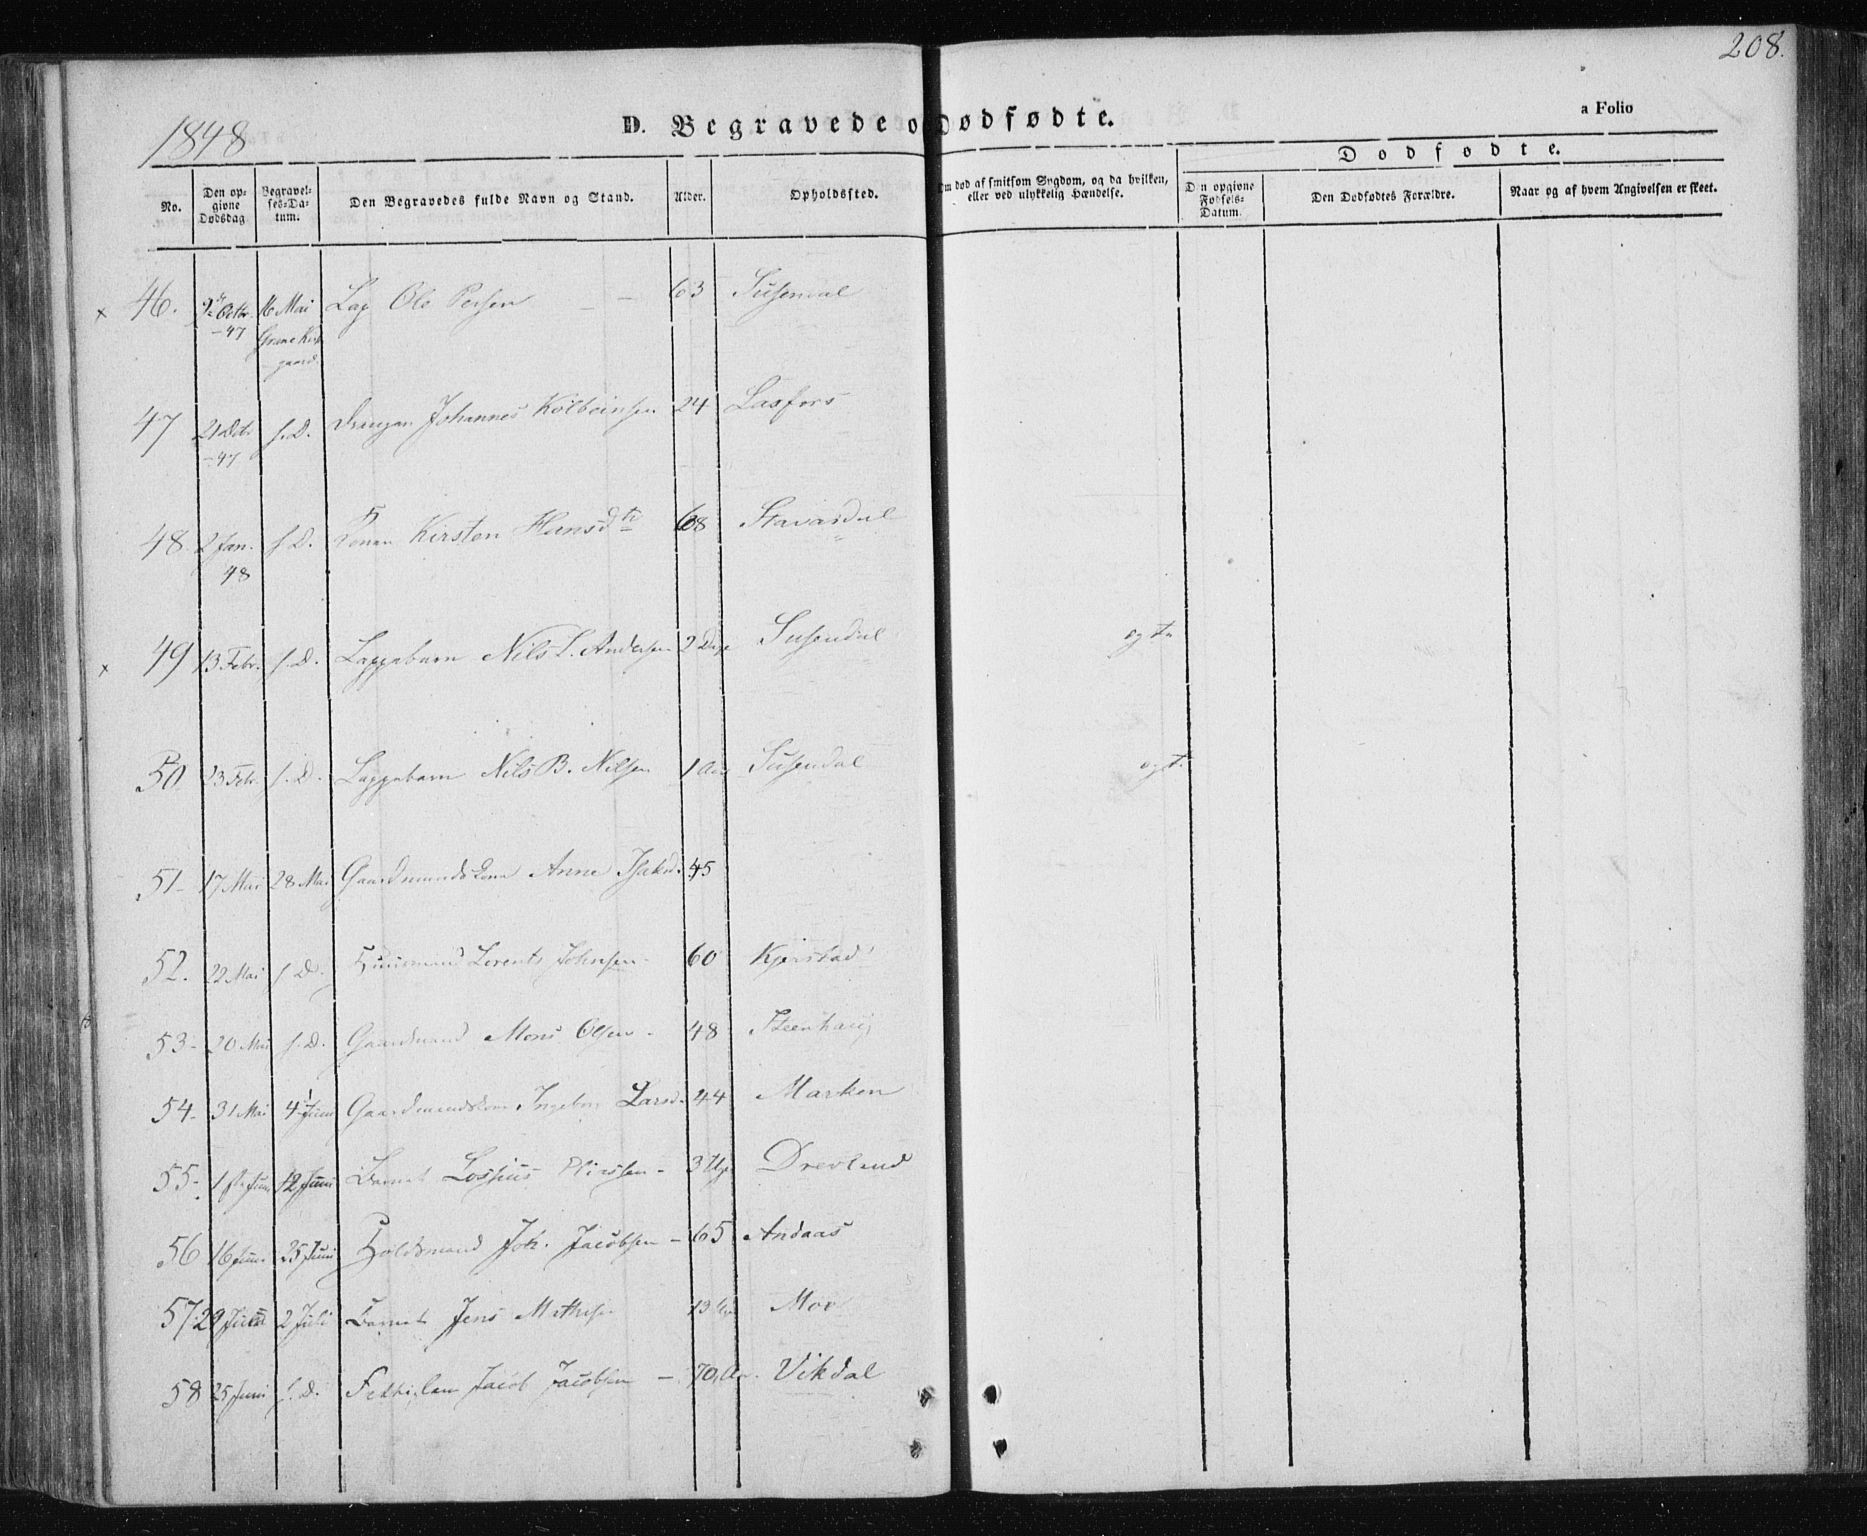 208.
1848
D. Begravede o
Dødfødte.
a Folio
Dodfødte.
No.
Den op-
givne
Dødsdag
Begravel-
ses-Da-
tum.
Den Begravedes fulde Navn og Stand.
Alder.
Opholdssted.
Om død af smitsom Sygdom, og da hvilken,
eller ved ulykkelig Hændelse.
D n opgivne
Fødsels-
Datum.
Den Dødfødtes Forældre.
Naar og af hvem Angivelsen er skeet.
× 46. Octbr. 16 Mai Lap Ole Persen — 63 Susendal
-47 Grane Kirk
gaard.
47 21 -47 s. D. Drengen Johannes Kolbeinsen 24 Laxfors
48 2 Jan. 48 s. D. Konen Kirsten Hansdtr 68 Stavasdal
× 49 13 Febr. s. D. Lappebarn Nils L. Andersen 2 Dage Susendal
50 23 Febr. s. D. Lappebarn Nils B. Nilsen 1 Aar Susendal
51- 17 Mai 28 Mai Gaardmandskone Anne Isaksd. 45
52. 22 Mai s. D. Huusmand Lorents Johnsen - 60 Kjerstad
53- 20 Mai s. D. Gaardmand Mons Olsen - 48 Steenhaug
54- 31 Mai 4 Juni Gaardmandskone Ingeborg Larsd. 44 Marken
55- 1ste Juni 12 Juni Barnet Lossius 3 Uger Drevland
56 16 Juni 25 Juni Holdsmand Joh. Jacobsen - 65 Andaas
57 29 Juni 2 Juli Barnet Jens 13 Moe
58 25 Juni s. D. Jacob Jacobsen — 70 Aar. Vikdal